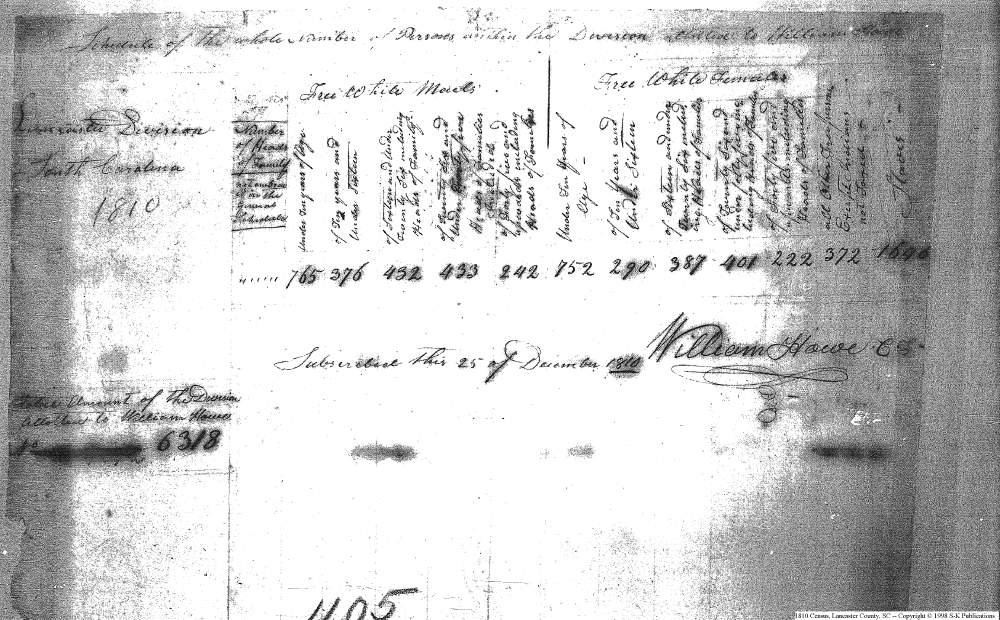 Schedule of the whole Number of Persons within the Division allotted to William Howe
Free White Males
Free White Females
Lancaster Division
South Carolina
1810
Number
of Heads
of Family
Under Ten years of Age
of Ten years and
Under Sixteen
of Sixteen and under
Twenty Six including
Heads of Family
of Twenty Six and
Under Forty five
Heads of Families
of Forty five and
upwards including
Heads of Families
Under Ten Years of
Age
of Ten Years and
Under Sixteen
of Sixteen and under
Twenty Six includ
ing Heads of families
of Forty five and
upwards including
Heads of Families
all Other Free persons
Except Indians
not Taxed
Slaves
765 376 432 433 242 752 290 387 401 222 372 1646
Subscribed this 25 of December 1810
William Howe
Amount of the Division
allotted to William Howe
is 6318
405
1810 Census, Lancaster County, SC -- Copyright © 1998 S-K Publications